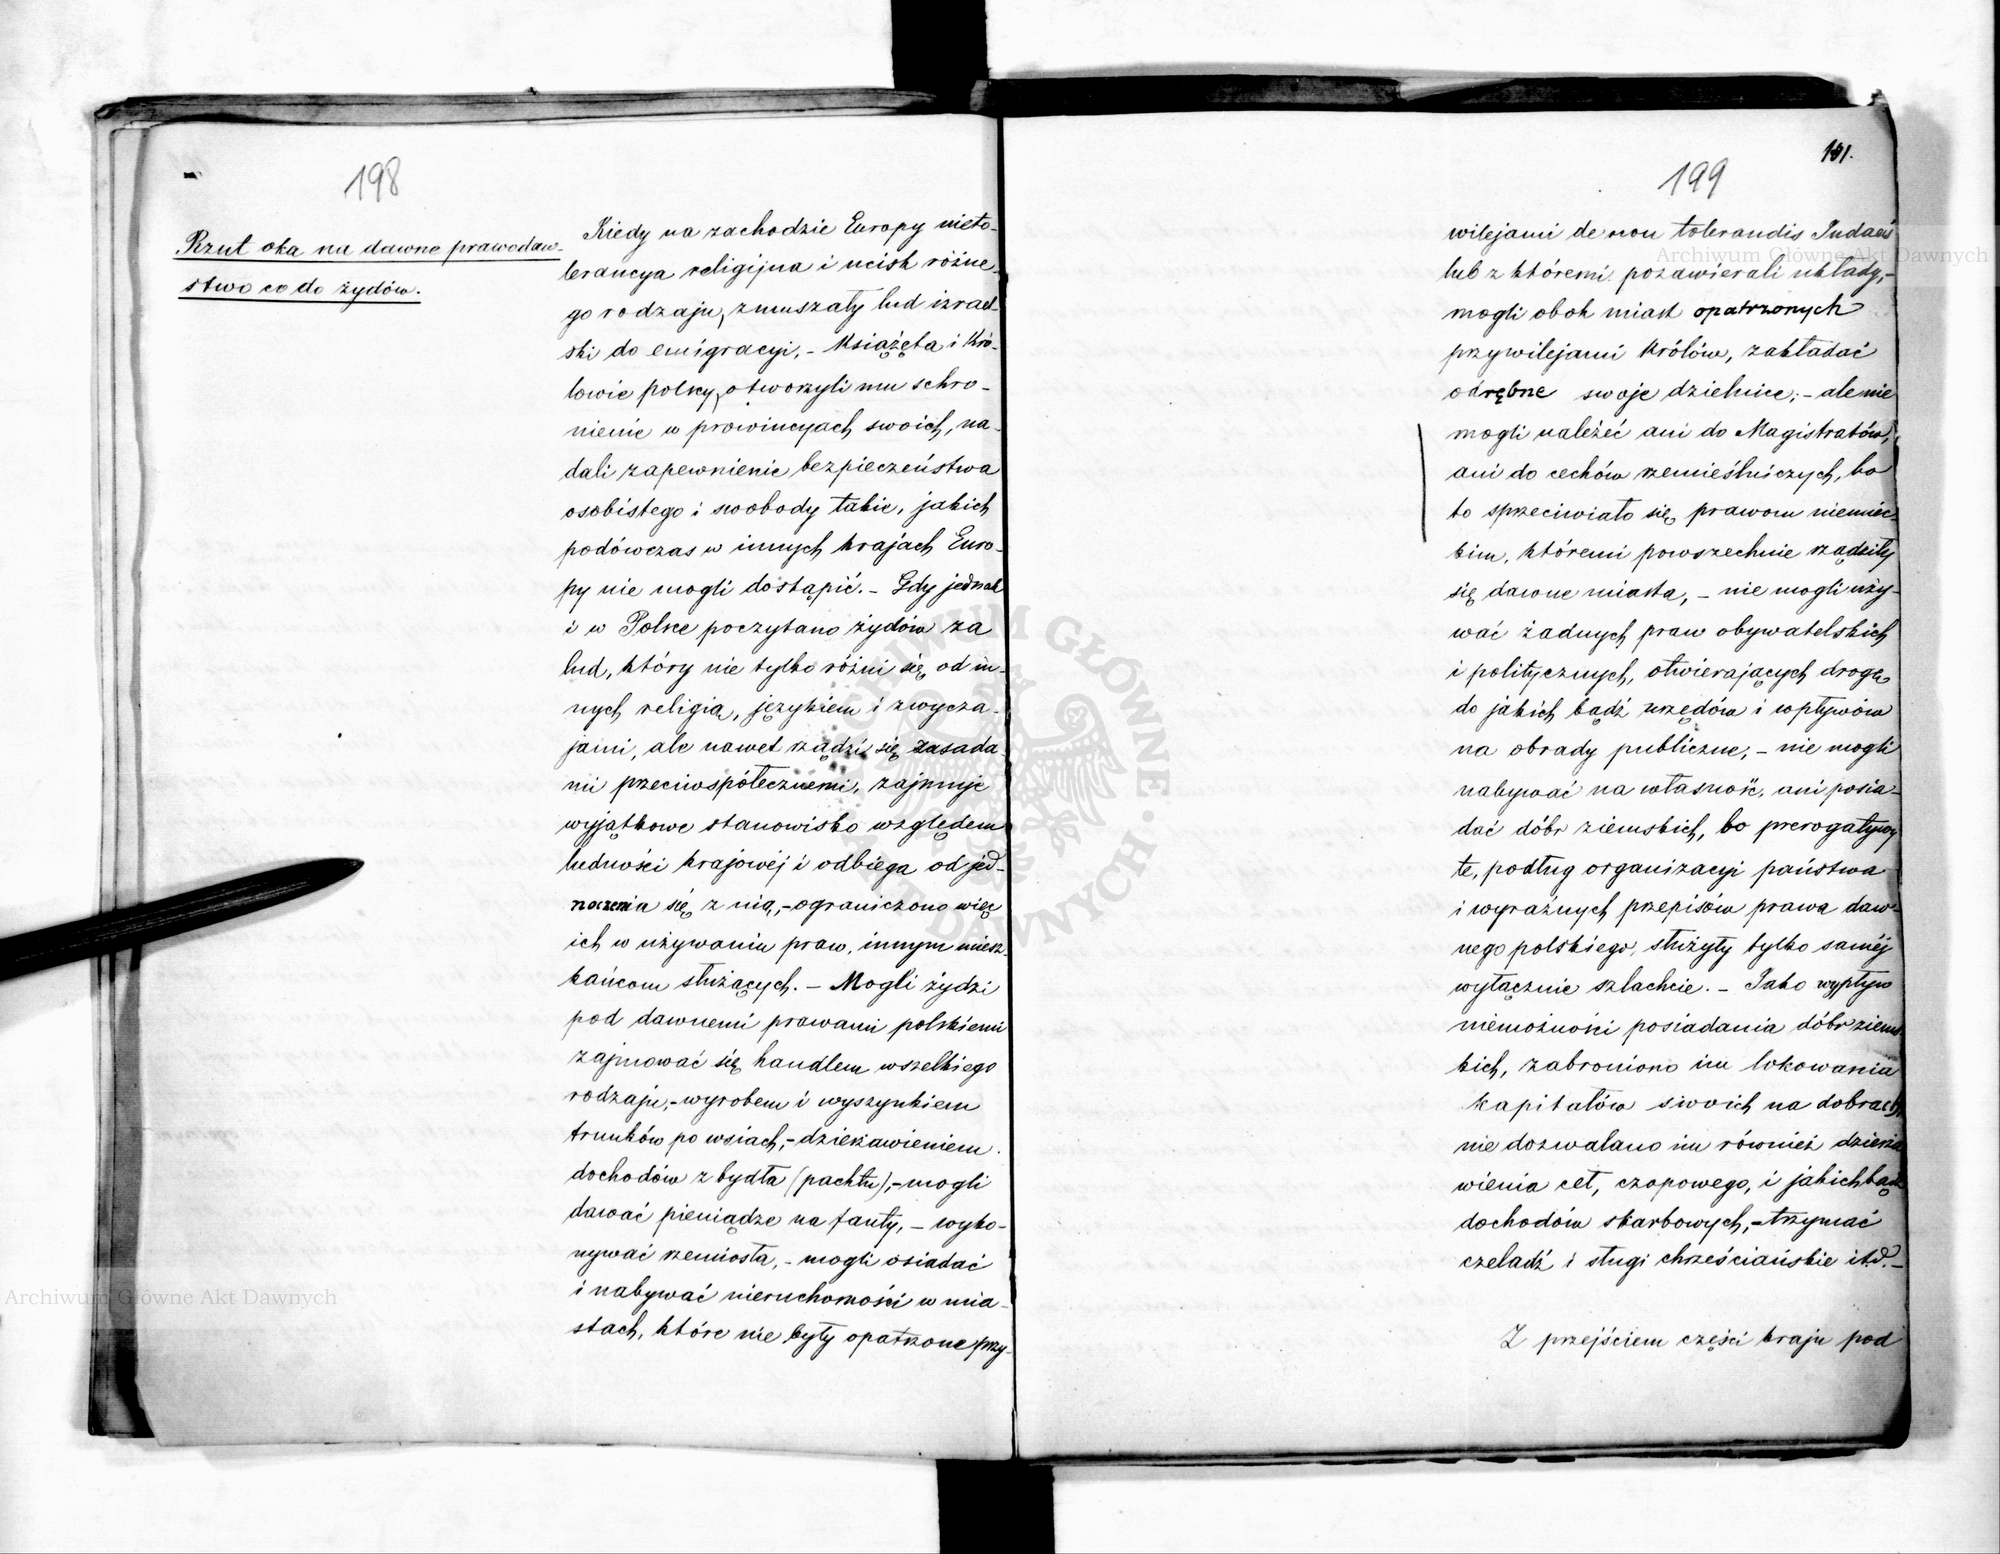 198
Rzut oka na dawne prawodaw-
stwo co do żydów.
Kiedy na zachodzie Europy nieto-
lerancya religijna i ucisk różne-
go rodzaju, zmuszały lud izrael-
ski do emigracyi, – Książęta i Kró-
lowie polscy, otworzyli mu schro-
nienie w prowincyach swoich, na-
dali zapewnienie bezpieczeństwa
osobistego i swobody takie, jakich
podówczas w innych krajach Euro-
py nie mogli dostąpić. – Gdy jednak
i w Polsce poczytano żydów za
lud, który nie tylko różni się od in-
nych religią, językiem i zwycza-
jami, ale nawet rządzi się zasada-
mi przeciwspółecznemi, zajmuje
wyjątkowe stanowisko względem
ludności krajowéj i odbiega od jed-
noczenia się z nią, – ograniczono więc
ich w używaniu praw, innym miesz-
kańcom służących. – Mogli żydzi
pod dawnemi prawami polskiemi
zajmować się handlem wszelkiego
rodzaju, – wyrobem i wyszynkiem
trunków po wsiach, – dzierżawieniem
dochodów z bydła (pachtu), – mogli
dawać pieniądze na fanty, – wyko-
nywać rzemiosła, – mogli osiadać
i nabywać nieruchomości w mia-
stach, które nie były opatrzone przy-
191.
199
wilejami de non tolerandis Judaeis
lub z któremi pozawierali układy, –
mogli obok miast opatrzonych
przywilejami Królów, zakładać
odrębne swoje dzielnice; – ale nie
mogli należéć ani do Magistratów,
ani do cechów rzemieślniczych, bo
to sprzeciwiało się prawom niemiec-
kim, któremi powszechnie rządziły
się dawne miasta, – nie mogli uży-
wać żadnych praw obywatelskich
i politycznych, otwierających drogę
do jakich bądź urzędów i wpływów
na obrady publiczne, – nie mogli
nabywać na własność, ani posia-
dać dóbr ziemskich, bo prerogatywy
te, podług organizacyi państwa
i wyraźnych przepisów prawa daw-
nego polskiego, służyły tylko saméj
wyłącznie szlachcie. – Jako wypływ
niemożności posiadania dóbr ziems-
kich, zabroniono im lokowania
kapitałów swoich na dobrach,
nie dozwalano im również dzierża-
wienia ceł, czopowego, i jakichbądź
dochodów skarbowych, – trzymać
czeladź i sługi chrześciańskie itd. –
Z przejściem części kraju pod
Archiwum Główne Akt Dawnych
Archiwum Główne Akt Dawnych
ARCHIWUM GŁÓWNE AKT DAWNYCH